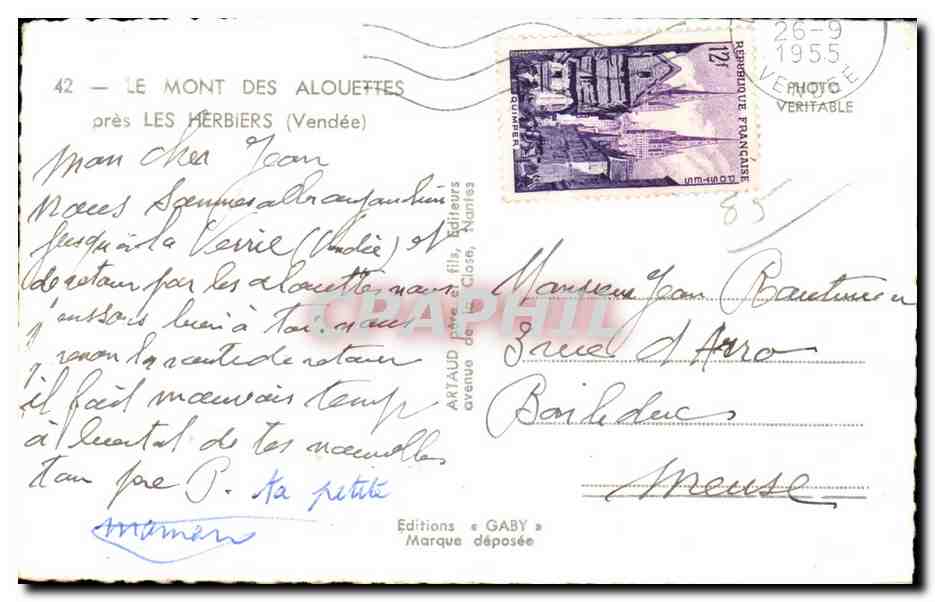 42 — LE MONT DES ALOUETTES
près LES HERBIERS (Vendée)
PHOTO
VERITABLE
26-9
1955
VENDÉE
12f
RÉPUBLIQUE FRANÇAISE
QUIMPER
POSTES
85
Mon cher Jean
nous sommes allr aujourd'hui
jusqu'à la Verrie (Vendée) et
de retour par les alouettes nous
pensons bien à toi. nous
la route de retour
il fait mauvais temps
à bientot de tes nouvelles
ton pere P. ta petite
maman
ARTAUD père et fils, Editeurs
avenue de la Close, Nantes
CPAPHIL
Monsieur Jean
3 rue d'Arro
Bar le duc
Meuse
Editions « GABY »
Marque déposée